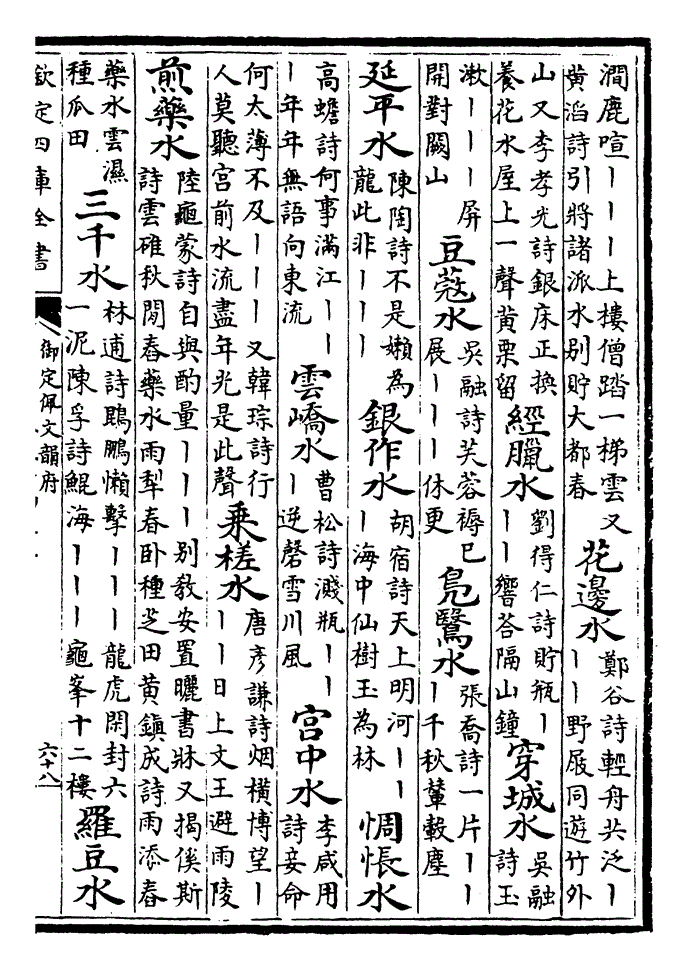 澗鹿喧丨丨丨上樓僧踏一梯雲又
黄滔詩引將諸派水别貯大都春
花邊水
鄭谷詩輕舟共泛丨
丨丨野屐同遊竹外
山又李孝光詩銀床正換
養花水屋上一聲黄栗留
經臘水
劉得仁詩貯瓶丨
丨丨響荅隔山鐘
穿城水
吳融
詩玉
漱丨丨丨屏
開對闕山
豆蔻水
吳融詩芙蓉褥已
展丨丨丨休更
鳧鷖水
張喬詩一片丨丨
丨千秋輦轂塵
延平水
陳陶詩不是嬾為
龍此非丨丨丨
銀作水
胡宿詩天上明河丨丨
丨海中仙樹玉為林
惆悵水
高蟾詩何事滿江丨丨
丨年年無語向東流
雲嶠水
曹松詩濺瓶丨丨
丨逆磬雪川風
宫中水
李咸用
詩妾命
何太薄不及丨丨丨又韓琮詩行
人莫聽宫前水流盡年光是此聲
乗槎水
唐彦謙詩烟横博望丨
丨丨日上文王避雨陵
煎藥水
陸龜蒙詩自與酌量丨丨丨别敎安置曬書牀又揭傒斯
詩雲碓秋閒舂藥水雨犁春卧種芝田黄鎮成詩雨添舂
藥水雲濕
種瓜田
三千水
林逋詩鵾鵬懶擊丨丨丨龍虎開封六
一泥陳孚詩鯤海丨丨丨龜峯十二樓
羅豆水
欽定四庫全書
御定佩文韻府
六十八